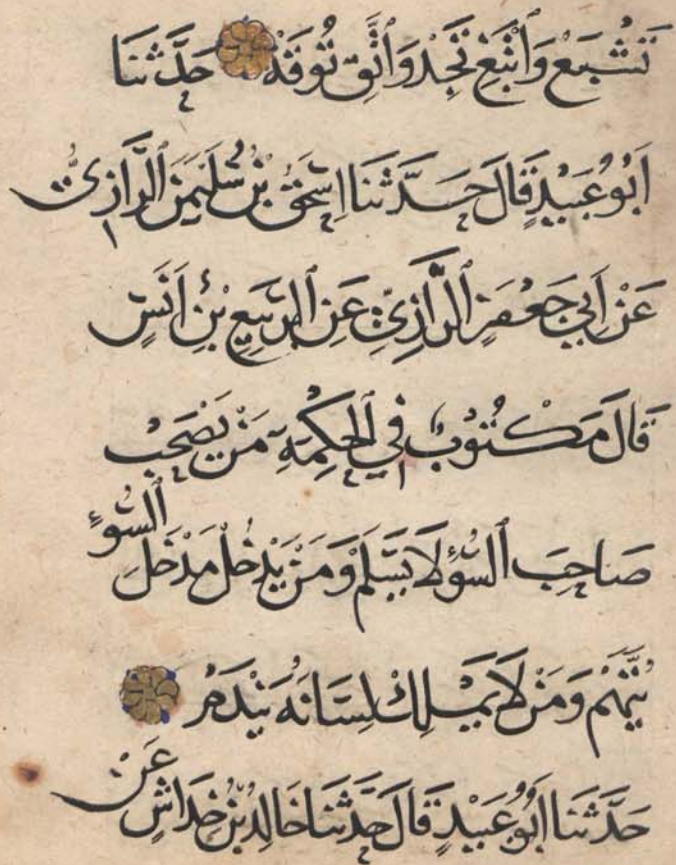 تَشْبَعْ وَٱبْتَغِ تَجِدْ وَٱتَّقِ تُوقَهْ حَدَّثَنَا
اَبُو عُبَيْدٍ قَالَ حَدَّثَنَا اِسْحَقُ بْنُ سُلَيْمَنَ ٱلرَّازِىُّ
عَنْ اَبِي جَعْفَرٍ ٱلرَّازِيِّ عَنِ ٱلرَّبِيعِ بْنِ اَنَسٍ
قَالَ مَكْتُوبٌ فِي ٱلْحِكْمَةِ مَنْ يَصْحَبْ
صَاحِبَ ٱلسُّوْءِ لَا يَسْلَمْ وَمَنْ يَدْخُلْ مَدْخَلَ ٱلسُّوْءِ
يُتَّهَمْ وَمَنْ لَا يَمْلِكْ لِسَانَهُ يَنْدَمْ
حَدَّثَنَا اَبُو عُبَيْدٍ قَالَ حَدَّثَنَا خَالِدُ بْنُ خِدَاشٍ عَنْ